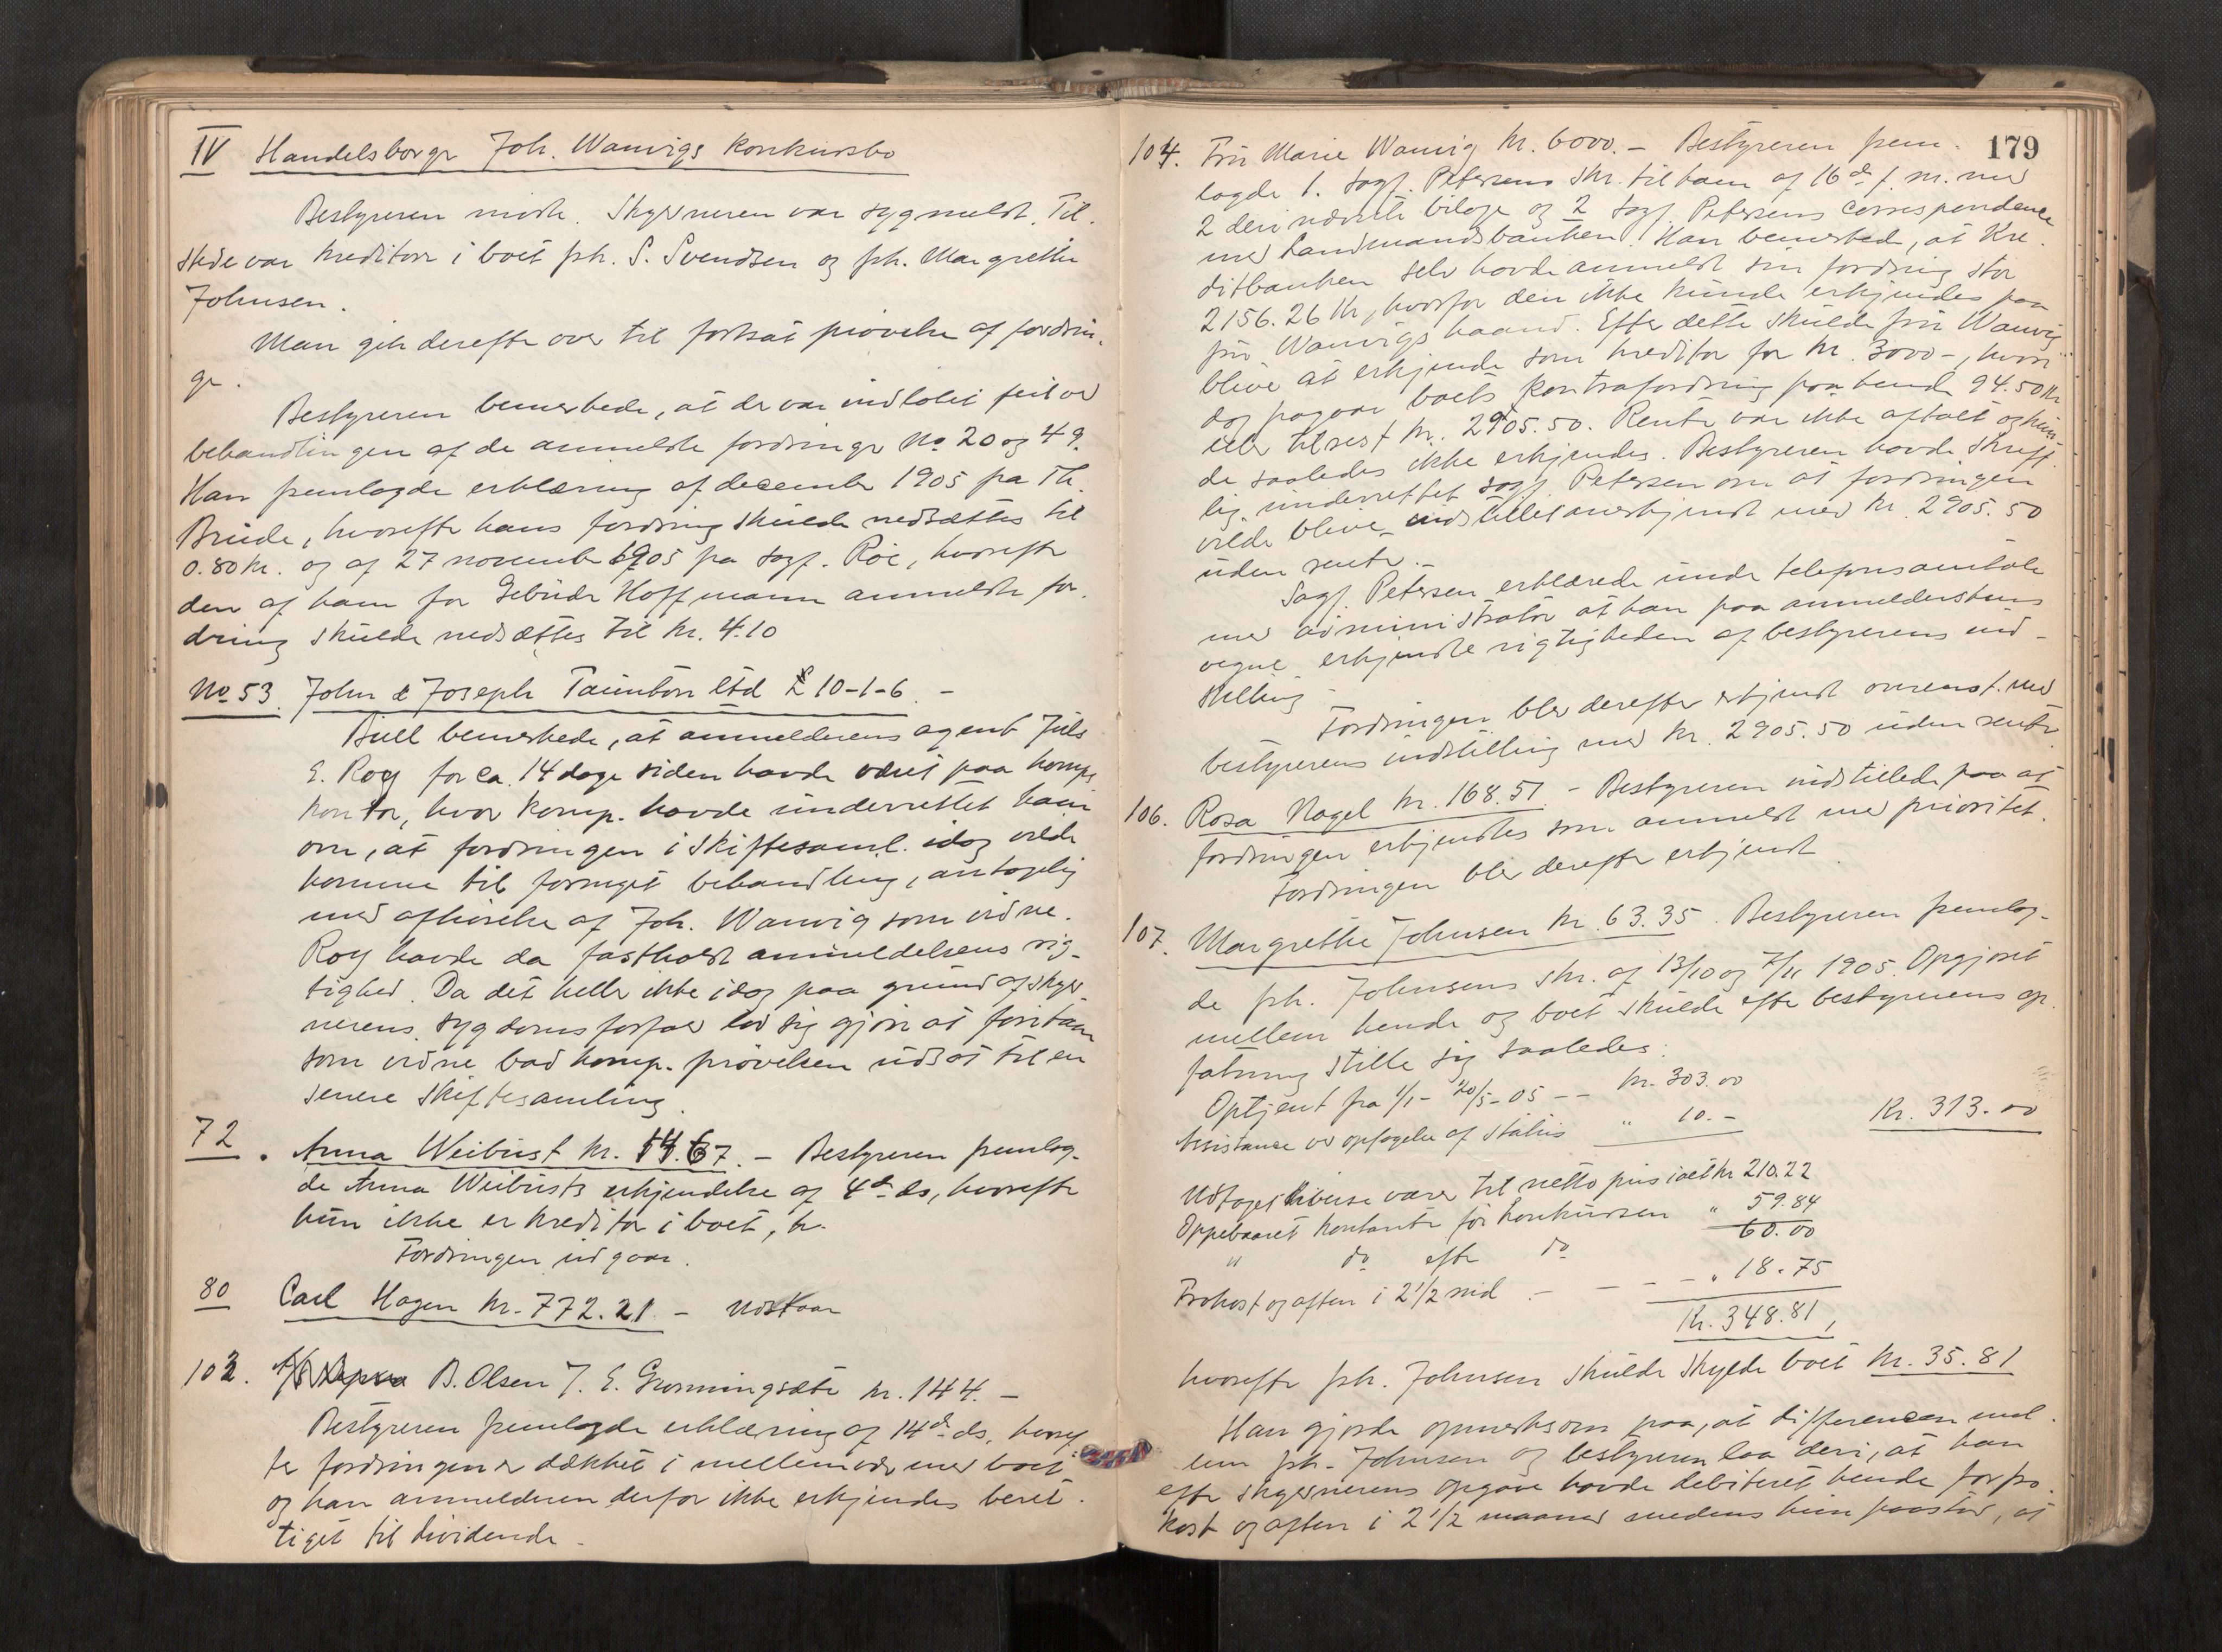 IV Handelsborger Joh. Wanvigs konkursbo
Bestyreren mødte. Skyldneren var sygmeldt. Til-
stede var kreditor i boet frk. S. Svendsen og frk. Margrethe
Johnsen.
Man gik derefter over til fortsat prøvelse af fordrin-
ger.
Bestyreren bemerkede, at der var indløbet feil ved
behandlingen af de anmeldte fordringer No 20 og 49.
Han fremlagde erklæring af december 1905 fra Th.
Brude, hvorefter hans fordring skulde nedsættes til
0.80 kr. og af 27 november 1905 fra sagf. Röe, hvorefter
den af ham for Gebrüder Hoffmann anmeldte for-
dring skulde nedsættes til kr. 4.10
No 53. John & Joseph Taunton Ltd £ 10-1-6. -
Buell bemerkede, at anmelderens agent Juls
E. Roy for ca. 14 dage siden havde været paa komp.
kontor, hvor komp. havde underrettet ham
om, at fordringen i skiftesaml. idag vilde
komme til fornyet behandling, antagelig
med afhørelse af Joh. Wanvig som vidne.
Roy havde da fastholdt anmeldelsens rig-
tighed. Da det heller ikke idag paa grund af skyld-
nerens sygdomsforfald lod sig gjøre at foretage
som vidne bad komp. prøvelsen udsat til en
senere skiftesamling.
72. Anna Weibust kr. 14.67. - Bestyreren fremlag-
de Anna Weibusts erkjendelse af 4de ds, hvorefter
hun ikke er kreditor i boet,
Fordringen udgaar.
80 Carl Hagen kr. 772.21 - Udstaar
102. B. Olsen J. E. Grønningsæter kr. 144. -
Bestyreren fremlagde erklæring af 14de ds. hvoref-
ter fordringen er dækket i mellemvær med boet
og kan anmelderen derfor ikke erkjendes beret-
tiget til dividende.
179
104. Fru Marie Wanvig kr. 6000. - Bestyreren frem-
lagde 1. sagf. Petersens skr. til ham af 16de f. m. med
2 deri nævnte bilage og 2 sagf. Petersens correspondence
med Landmandsbanken. Han bemerkede, at Kre-
ditbanken selv havde anmeldt sin fordring stor
2156.26 kr, hvorfor den ikke kunde erkjendes paa
fru Wanvigs haand. Efter dette skulde fru Wanvig
blive at erkjende som kreditor for kr. 3000-, hvori
dog fragaar boets kontrafordring paa hende 94.50 kr
eller tilrest kr. 2905.50. Rente var ikke aftalt og kun-
de saaledes ikke erkjendes. Bestyreren havde skrift-
lig underrettet sagf. Petersen om at fordringen
vilde blive indstillet anerkjendt med kr. 2905.50
uden rente.-
Sagf. Petersen erklærede under telefonsamtale
med administrator at han paa anmelderskens
vegne erkjendte rigtigheden af bestyrerens ind-
stilling
Fordringen blev derefter erkjendt overenst. med
bestyrerens indstilling med kr. 2905.50 uden rente.
106. Rosa Nagel kr. 168.51. - Bestyreren indstillede paa at
fordringen erkjendtes som anmeldt med prioritet.
Fordringen blev derefter erkjendt
107. Margrethe Johnsen kr. 63.35. Bestyreren fremlag-
de frk. Johnsens skr. af 13/10 og 7/11 1905. Opgjøret
mellem hende og boet skulde efter bestyrerens op-
fatning stille sig saaledes:
Optjent fra 1/1 - 20/5-05 -- kr. 303.00
Assistance ved optagelse af status " 10.- Kr. 313.00
Udtaget diverse varer til netto pris ialt kr 210.22
Oppebaaret kontant før konkursen " 59.84
" do efter do 60.00
Frokost og aften i 2 1/2 md .- - - - " 18.75
Kr. 348.81,
hvorefter frk. Johnsen skulde skylde boet kr. 35.81
Han gjorde opmerksom paa, at differencen mel-
lem frk. Johnsen og bestyreren laa deri, at han
efter skyldnerens opgave havde debiteret hende for fro-
kost og aften i 2 1/2 maaned medens hun paastod, at